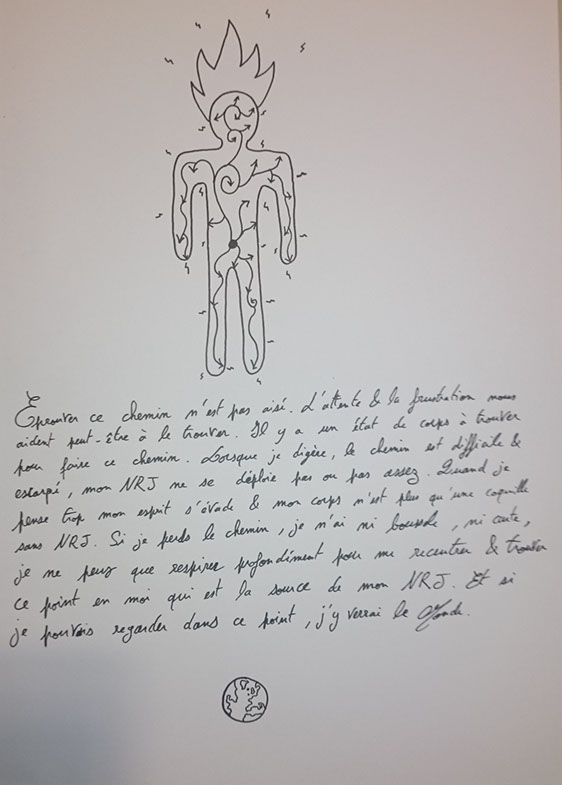 Éprouver ce chemin n'est pas aisé. L'attente & la frustration nous
aident peut-être à le trouver. Il y a un état de corps à trouver
pour faire ce chemin. Lorsque je digère, le chemin est difficile &
escarpé, mon NRJ ne se déploie pas ou pas assez. Quand je
pense trop mon esprit s'évade & mon corps n'est plus qu'une coquille
sans NRJ. Si je perds le chemin, je n'ai ni boussole, ni carte,
je ne peux que respirer profondément pour me recentrer & trouver
ce point en moi qui est la source de mon NRJ. Et si
je pouvais regarder dans ce point, j'y verrai le Monde.